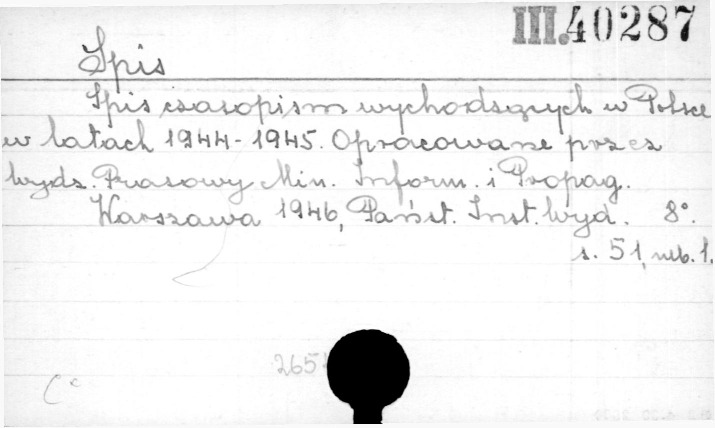 III.40287
Spis
Spis czasopism wychodzących w Polsce
w latach 1944-1945. Opracowane przez
Wydz. Prasowy Min. Inform. i Propag.
Warszawa 1946, Państ. Inst. Wyd. 8°.
s. 51, nlb. 1.
265